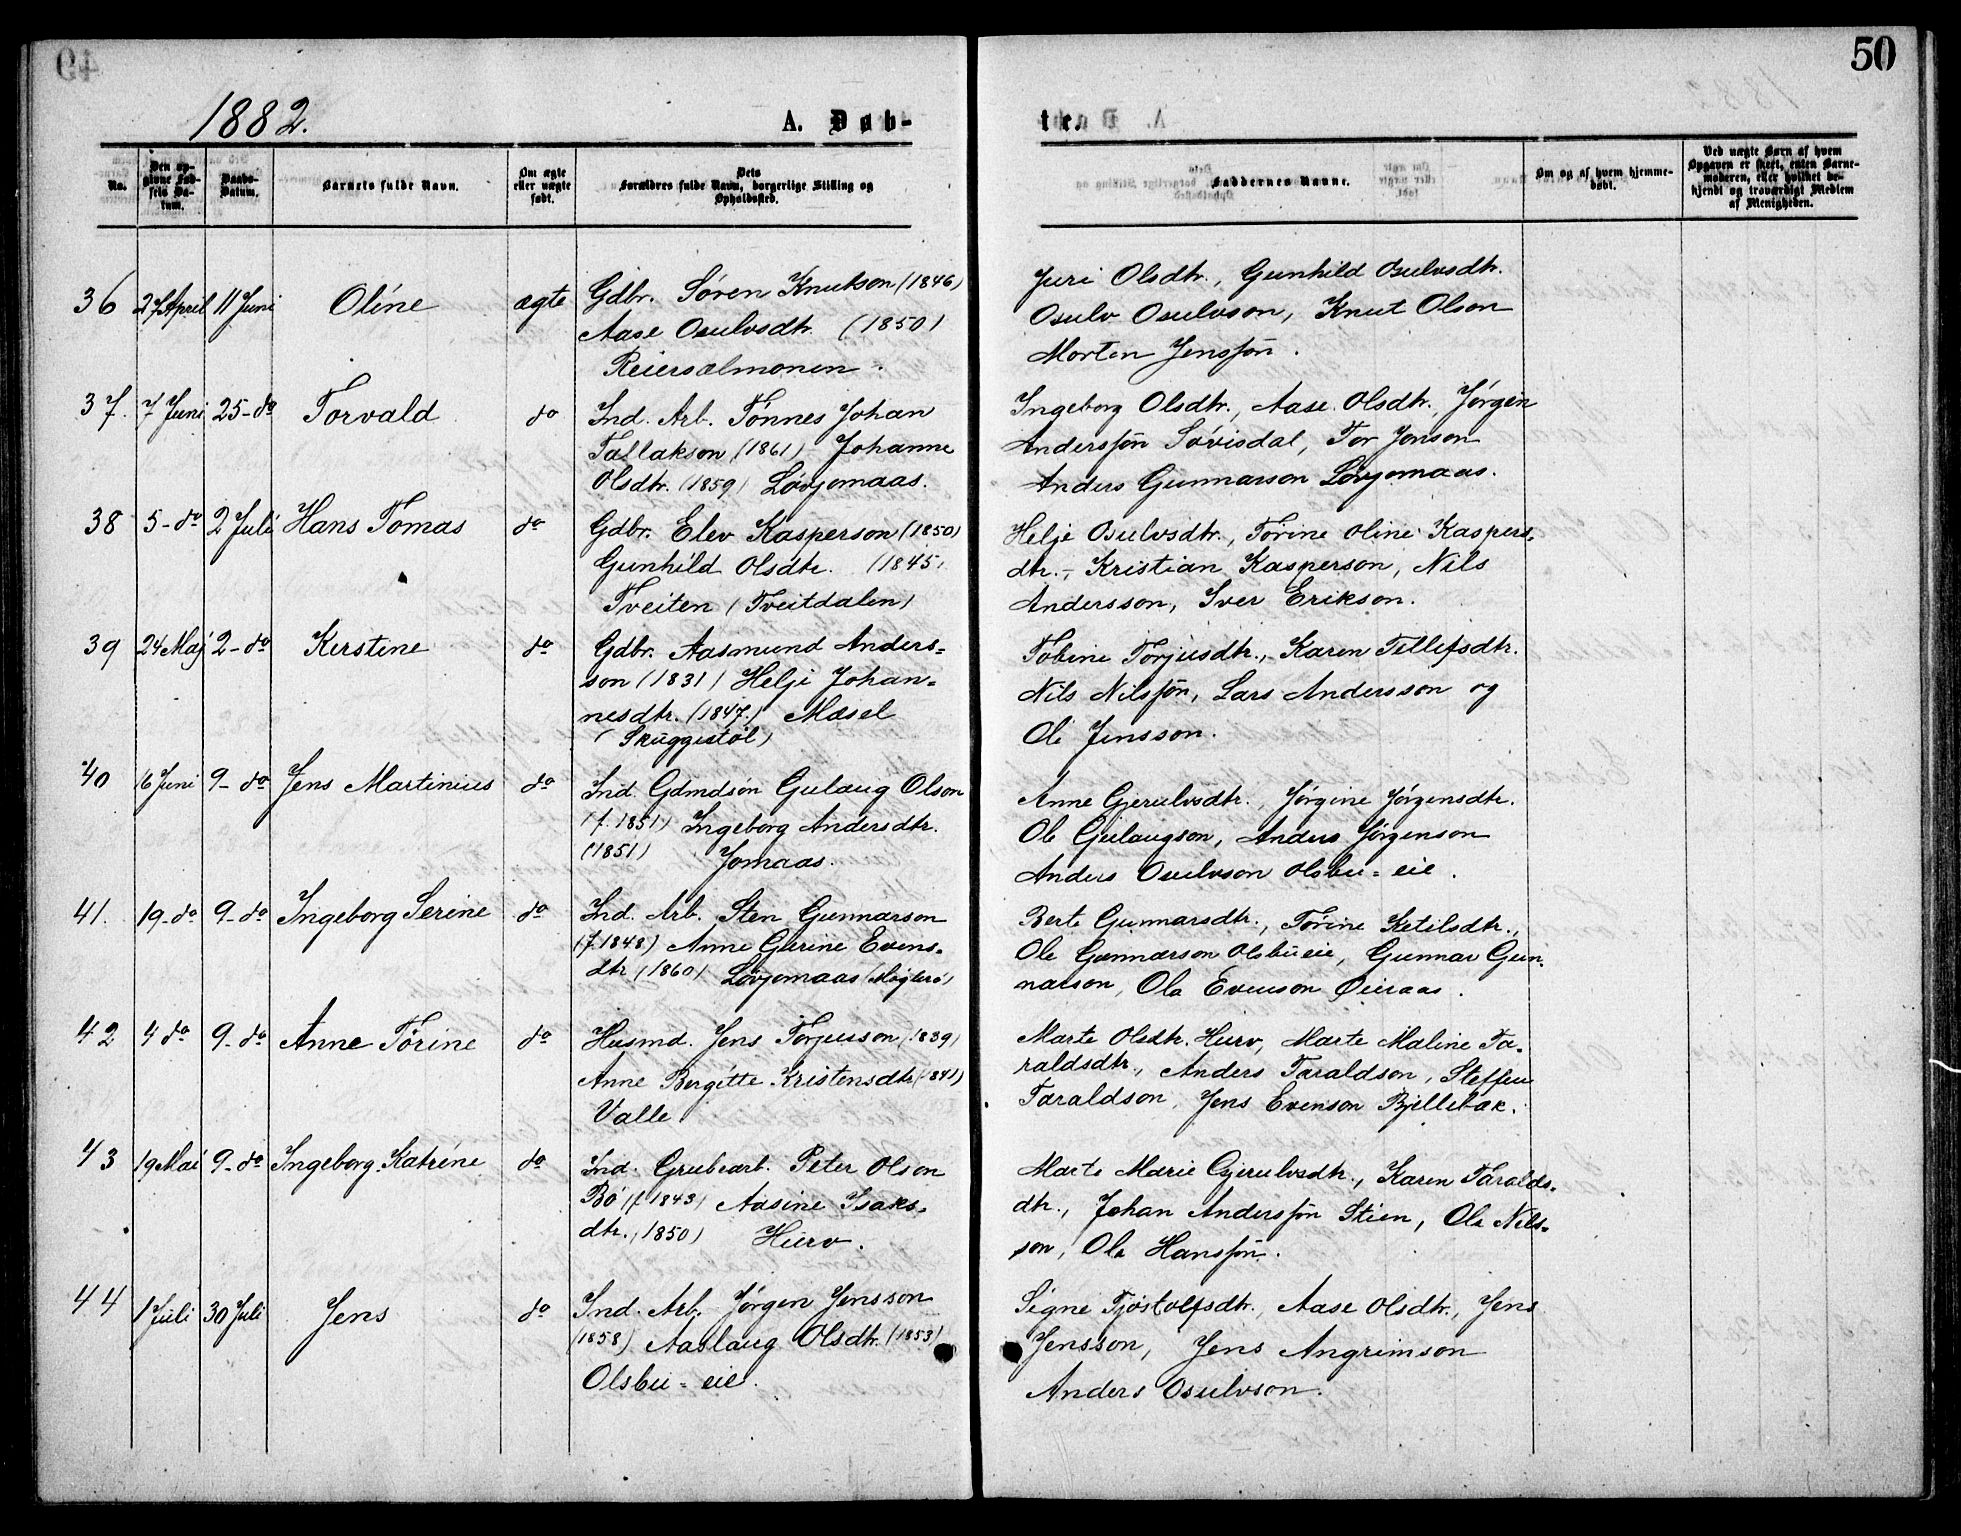 50
1882.
A. Døb-
te.
No.
Den op-
givne Fød-
sels Da-
tum.
Daabs-
Datum.
Barnets fulde Navn.
Om ægte
eller uægte
født.
Dets
Forældres fulde Navn, borgerlige Stilling og
Opholdssted.
Faddernes Navne.
Om og af hvem hjemme-
døbt.
Ved uægte Børn af hvem
Opgaven er skeet, enten Barne-
moderen, eller hvilket be-
kjendt og troværdigt Medlem
af Menigheden.
36 27 April 11 Juni Oline ægte Gdbr. Søren Knutson (1846)
Aase Osulvsdtr. (1850)
Reiersølmonen.
Juri Olsdtr., Gunhild Osulvsdtr.
Osulv Osulvson, Knut Olson
Morten Jenssøn.
37. 7 Juni 25-do Torvald do Ind. Arb. Tønnes Johan
Tallakson (1861) Johanne
Olsdtr. (1859) Løvjomaas.
Ingeborg Olsdtr., Aase Olsdtr., Jørgen
Anderssøn Løvisdal, Tor Jonson
Anders Gunnarson Løvjomaas.
38 5-do 2 Juli Hans Tomas do Gdbr. Elev Kasperson (1850)
Gunhild Olsdtr. (1845)
Tveiten (Tveitdalen)
Helje Osulvsdtr., Tørine Oline Kaspers-
dtr., Kristian Kasperson, Nils
Andersson, Iver Erikson.
39 24 Maj 2-do Kerstine do Gdbr. Aasmund Anders-
son (1831) Helje Johan-
nesdtr. (1847) Mæsel
(Skuggestøl)
Tobine Torjusdtr., Karen Tellefsdtr.
Nils Nilssøn, Lars Andersson og
Ole Jensson.
40 16 Juni 9-do Jens Martinius do Ind. Gdmdsøn Gulaug Olson
(f. 1851) Ingeborg Andersdtr.
(1851) Jomaas.
Anne Gjerulvsdtr., Jørgine Jørgensdtr.
Ole Gulaugson, Anders Jørgenson
Anders Osulvson Olsbu-eie.
41. 19-do 9-do Ingeborg Serine do Ind. Arb. Sten Gunnarson
(f. 1848) Anne Gurine Evens-
dtr. (1860) Løvjomaas
Berte Gunnarsdtr., Tørine Ketilsdtr.,
Ole Gunnarson Olsbu eie, Gunnar Gun-
narson, Ola Evenson Øieraas.
42 4 do 9-do Anne Tørine do Husmd. Jens Torjusson (1839)
Anne Bergitte Kristensdtr (1841)
Valle
Marte Olsdtr. Hurv, Marte Maline Ta-
raldsdtr., Anders Taraldson, Steffen
Taraldson, Jens Evenson Bjellebæk.
43 19 Mai 9-do Ingeborg Katrine do Ind. Grubearb. Peter Olson
Bø (f. 1843) Aasine Isaks-
dtr., 1850) Hurv.
Marte Marie Gjerulvsdtr., Karen Taralds-
dtr., Johan Anderssøn Stien, Ole Nils-
son, Ole Hanssøn.
44 1 Juli 30 Juli Jens do Ind. Arb. Jørgen Jensson
(1858) Aaslaug Olsdtr. (1853)
Olsbu-eie.
Signe Tjøstolfsdtr., Aase Olsdtr., Jens
Jensson, Jens Angrimson
Anders Osulvson.